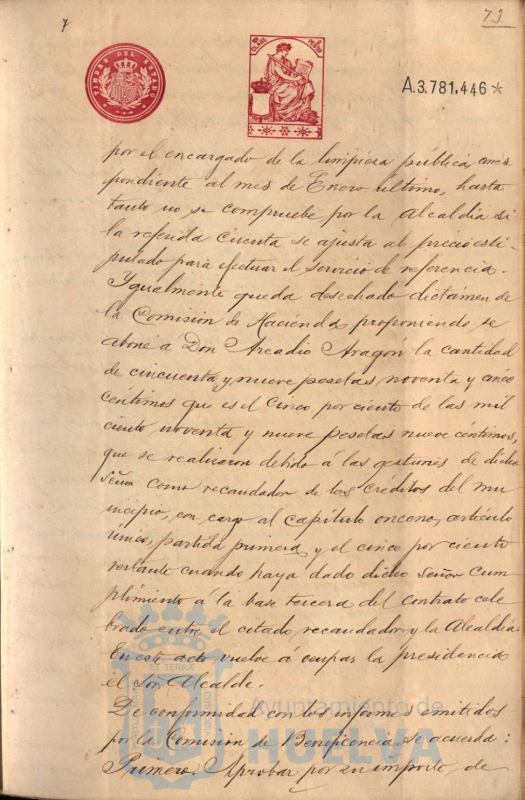 7
73
TIMBRE DEL ESTADO
A.3.781,446*
por el encargado de la limpieza pública corres
pondiente al mes de Enero último, hasta
tanto no se compruebe por la Alcaldia si
la referida cuenta se ajusta al precio esti-
pulado para efectuar el servicio de referencia.
Ygualmente queda desechado dictámen de
la Comisión de Hacienda proponiendo se
abone á Don Arcadio Aragón la cantidad
de cincuenta y nueve pesetas noventa y cinco
céntimos que es el Cinco por ciento de las mil
ciento noventa y nueve pesetas nueve céntimos,
que se realizaron debido á las gestiones de dicho
Señor como recaudador de los Créditos del mu
nicipio, con cargo al capítulo onceno, artículo
único, partida primera y el cinco por ciento
restante cuando haya dado dicho Señor Cum
plimiento á la base tercera del contrato cele
brado entre el citado recaudador y la Alcaldia.
En este acto vuelve á ocupar la presidencia
el Sor Alcalde.
De conformidad con los informes emitidos
por la Comisión de Beneficencia, se acuerda:
Primero. Aprobar por su importe, de
Ayuntamiento de
HUELVA